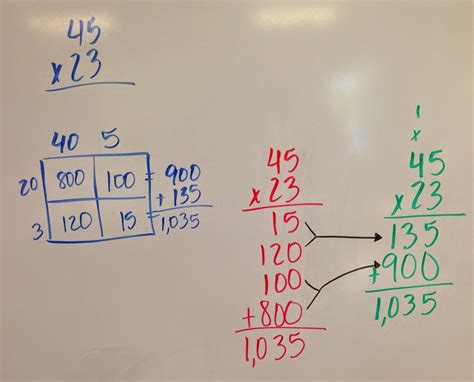 45
x23
40 5
20 800 100 = 900
+ 135
3 120 15 = 1,035
45
x23
15
120
100
+800
1,035
1
x
45
x23
135
+900
1,035